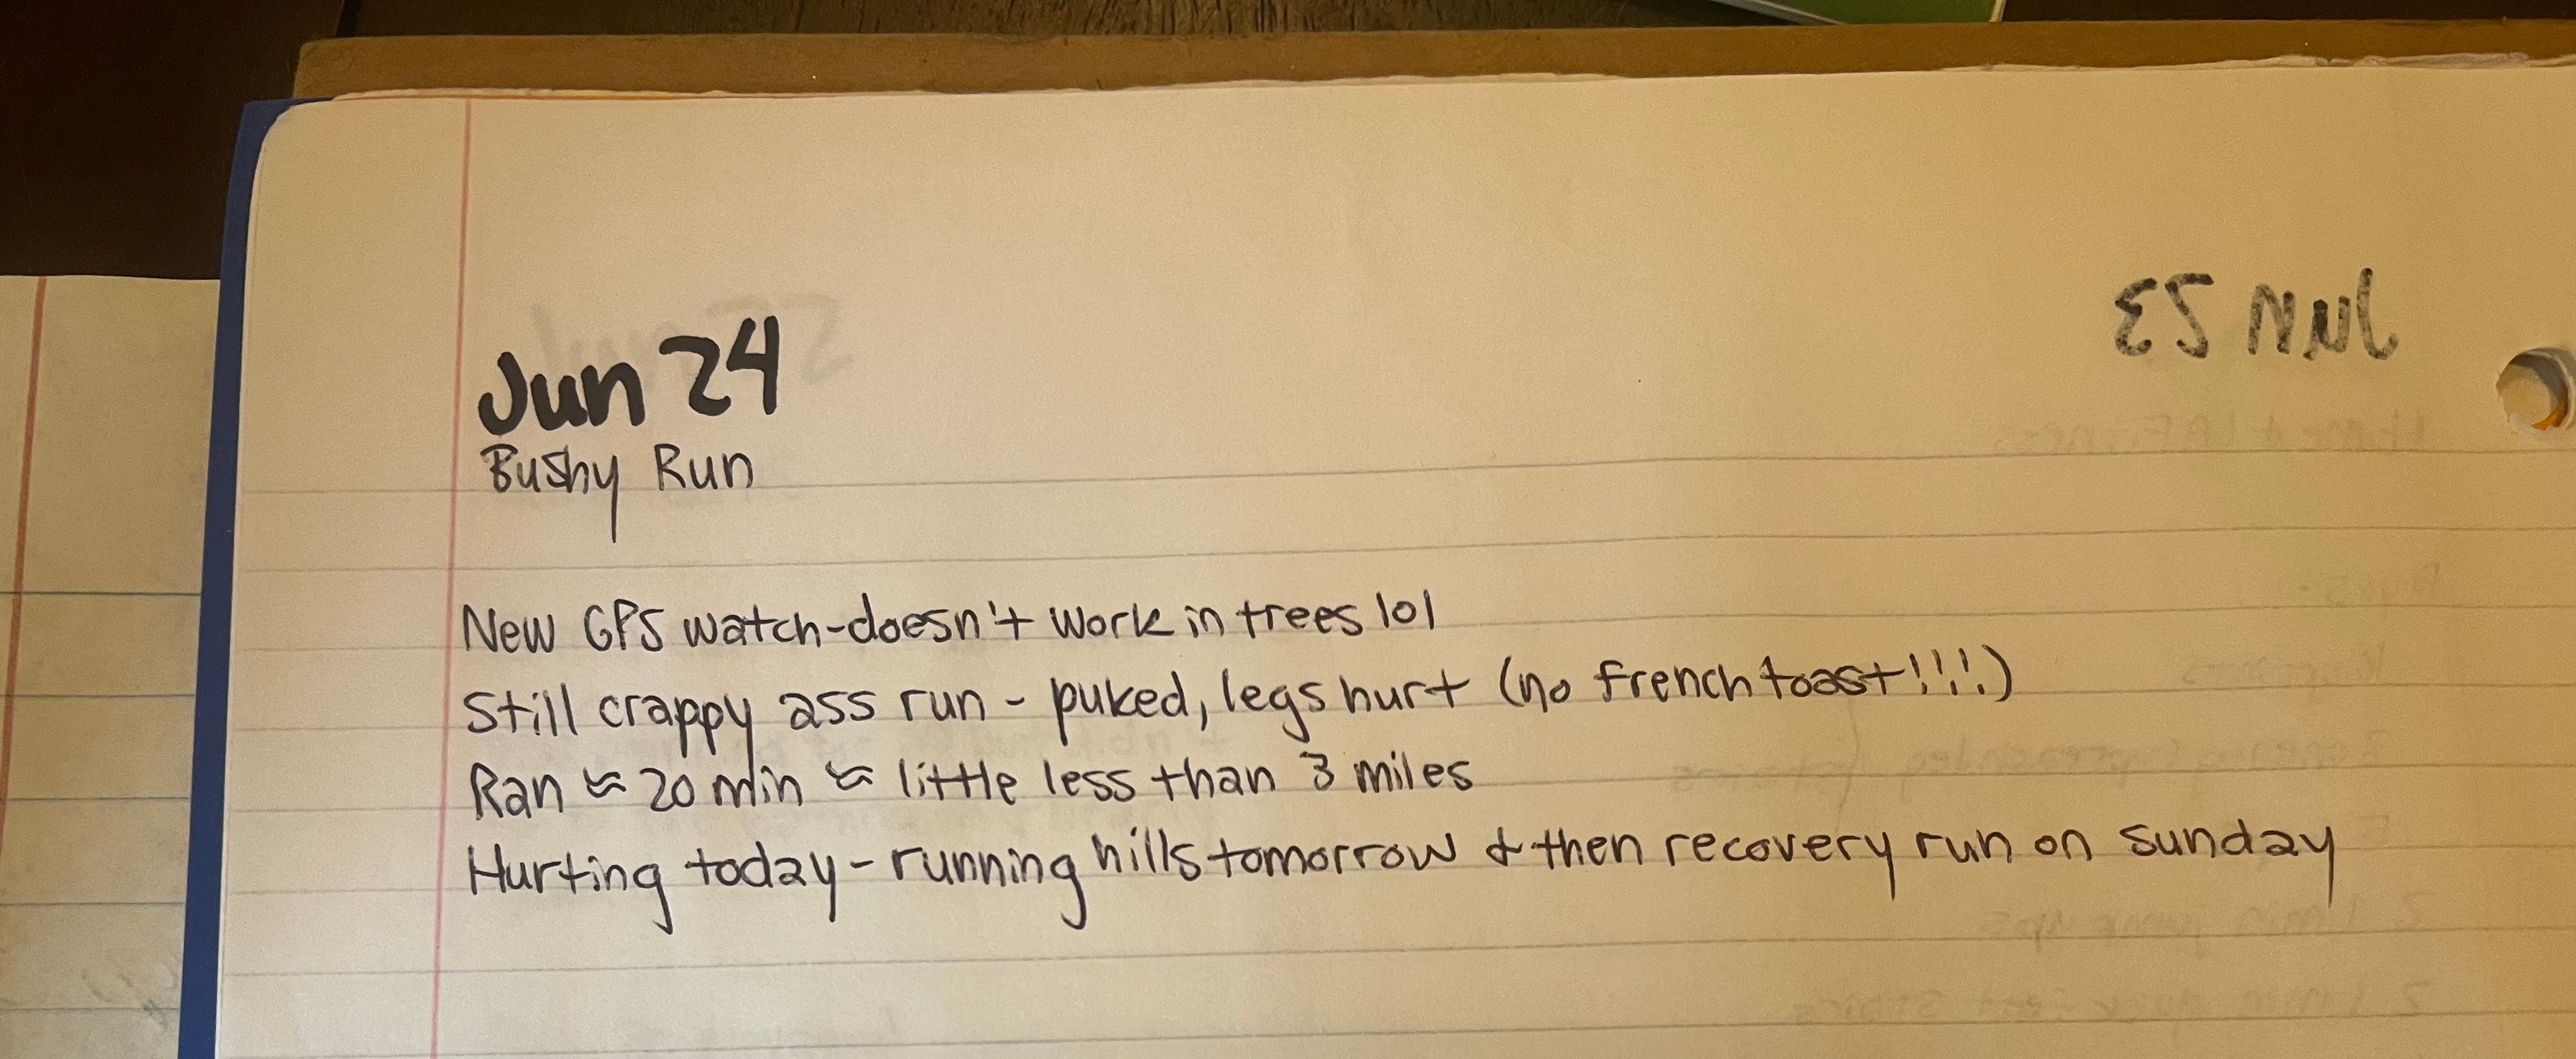 Jun 24
Bushy Run
New GPS watch-doesn't work in trees lol
Still crappy ass run - puked, legs hurt (no french toast!!!!)
Ran ≈ 20 min ≈ little less than 3 miles
Hurting today - running hills tomorrow & then recovery run on Sunday
Jun 23